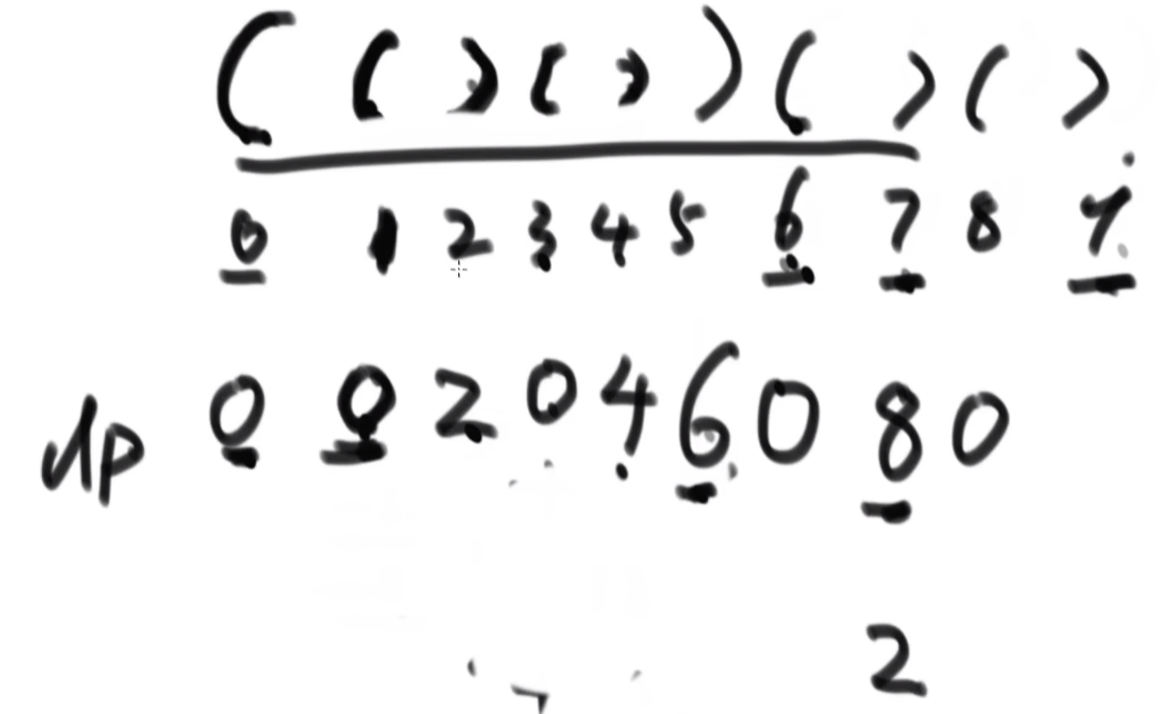 ( ( ) ( ) ) ( ) ( )
0 1 2 3 4 5 6 7 8 9
dp 0 0 2 0 4 6 0 8 0
2